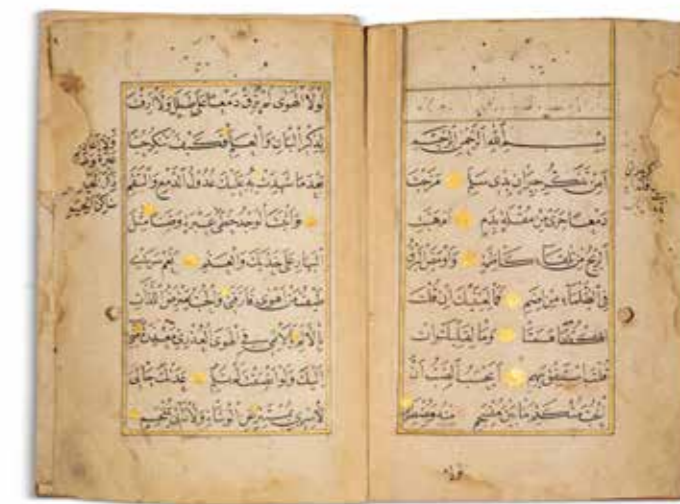 بسم الله الرحمن الرحيم
أمن تذكر جيران بذي سلم مزجت
دمعا جرى من مقلة بدم أم هبت
الريح من تلقاء كاظمة وأومض البرق
في الظلماء من إضم فما لعينيك إن قلت
اكففا همتا وما لقلبك إن
قلت استفق يهم أيحسب الصب أن
الحب منكتم ما بين منسجم منه ومضطرم
لولا
لولا الهوى لم ترق دمعا على طلل ولا أرقت
لذكر البان والعلم فكيف تنكر حبا
بعد ما شهدت به عليك عدول الدمع والسقم
وأثبت الوجد خطي عبرة وضنا مثل
البهار على خديك والعنم نعم سرى
طيف من أهوى فأرقني والحب يعترض اللذات
بالألم يا لائمي في الهوى العذري معذرة مني
إليك ولو أنصفت لم تلم عدتك حالي
لا سري بمستتر عن الوشاة ولا دائي بمنحسم